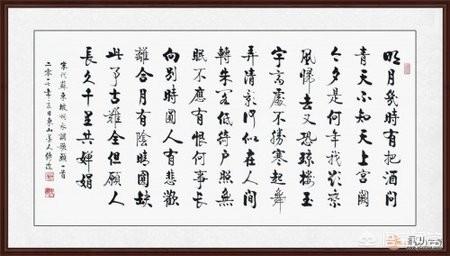 明月幾時有把酒問
青天不知天上宮闕
今夕是何年我欲乘
風歸去又恐瓊樓玉
宇高處不勝寒起舞
弄清影何似在人間
轉朱閣低綺戶照無
眠不應有恨何事長
向別時圓人有悲歡
離合月有陰晴圓缺
此事古難全但願人
長久千里共嬋娟
宋代蘇東坡水調歌頭一首